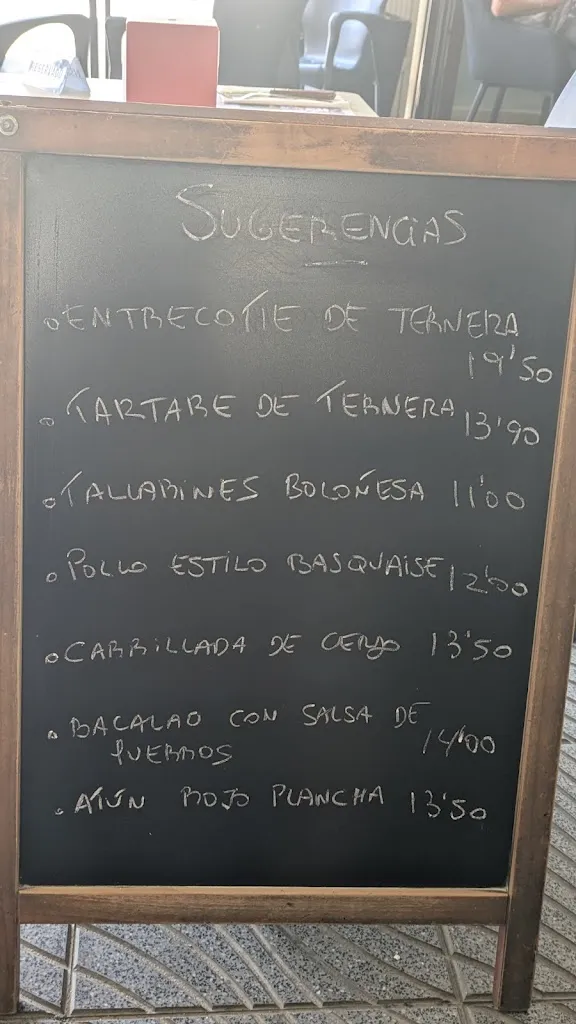 SUGERENCIAS
ENTRECOTTE DE TERNERA
19'50
TARTARE DE TERNERA 13'90
TALLARINES BOLOÑESA 11'00
POLLO ESTILO BASQUAISE 12'00
CARRILLADA DE CERDO 13'50
BACALAO CON SALSA DE
PUERROS 14'00
ATÚN ROJO PLANCHA 13'50